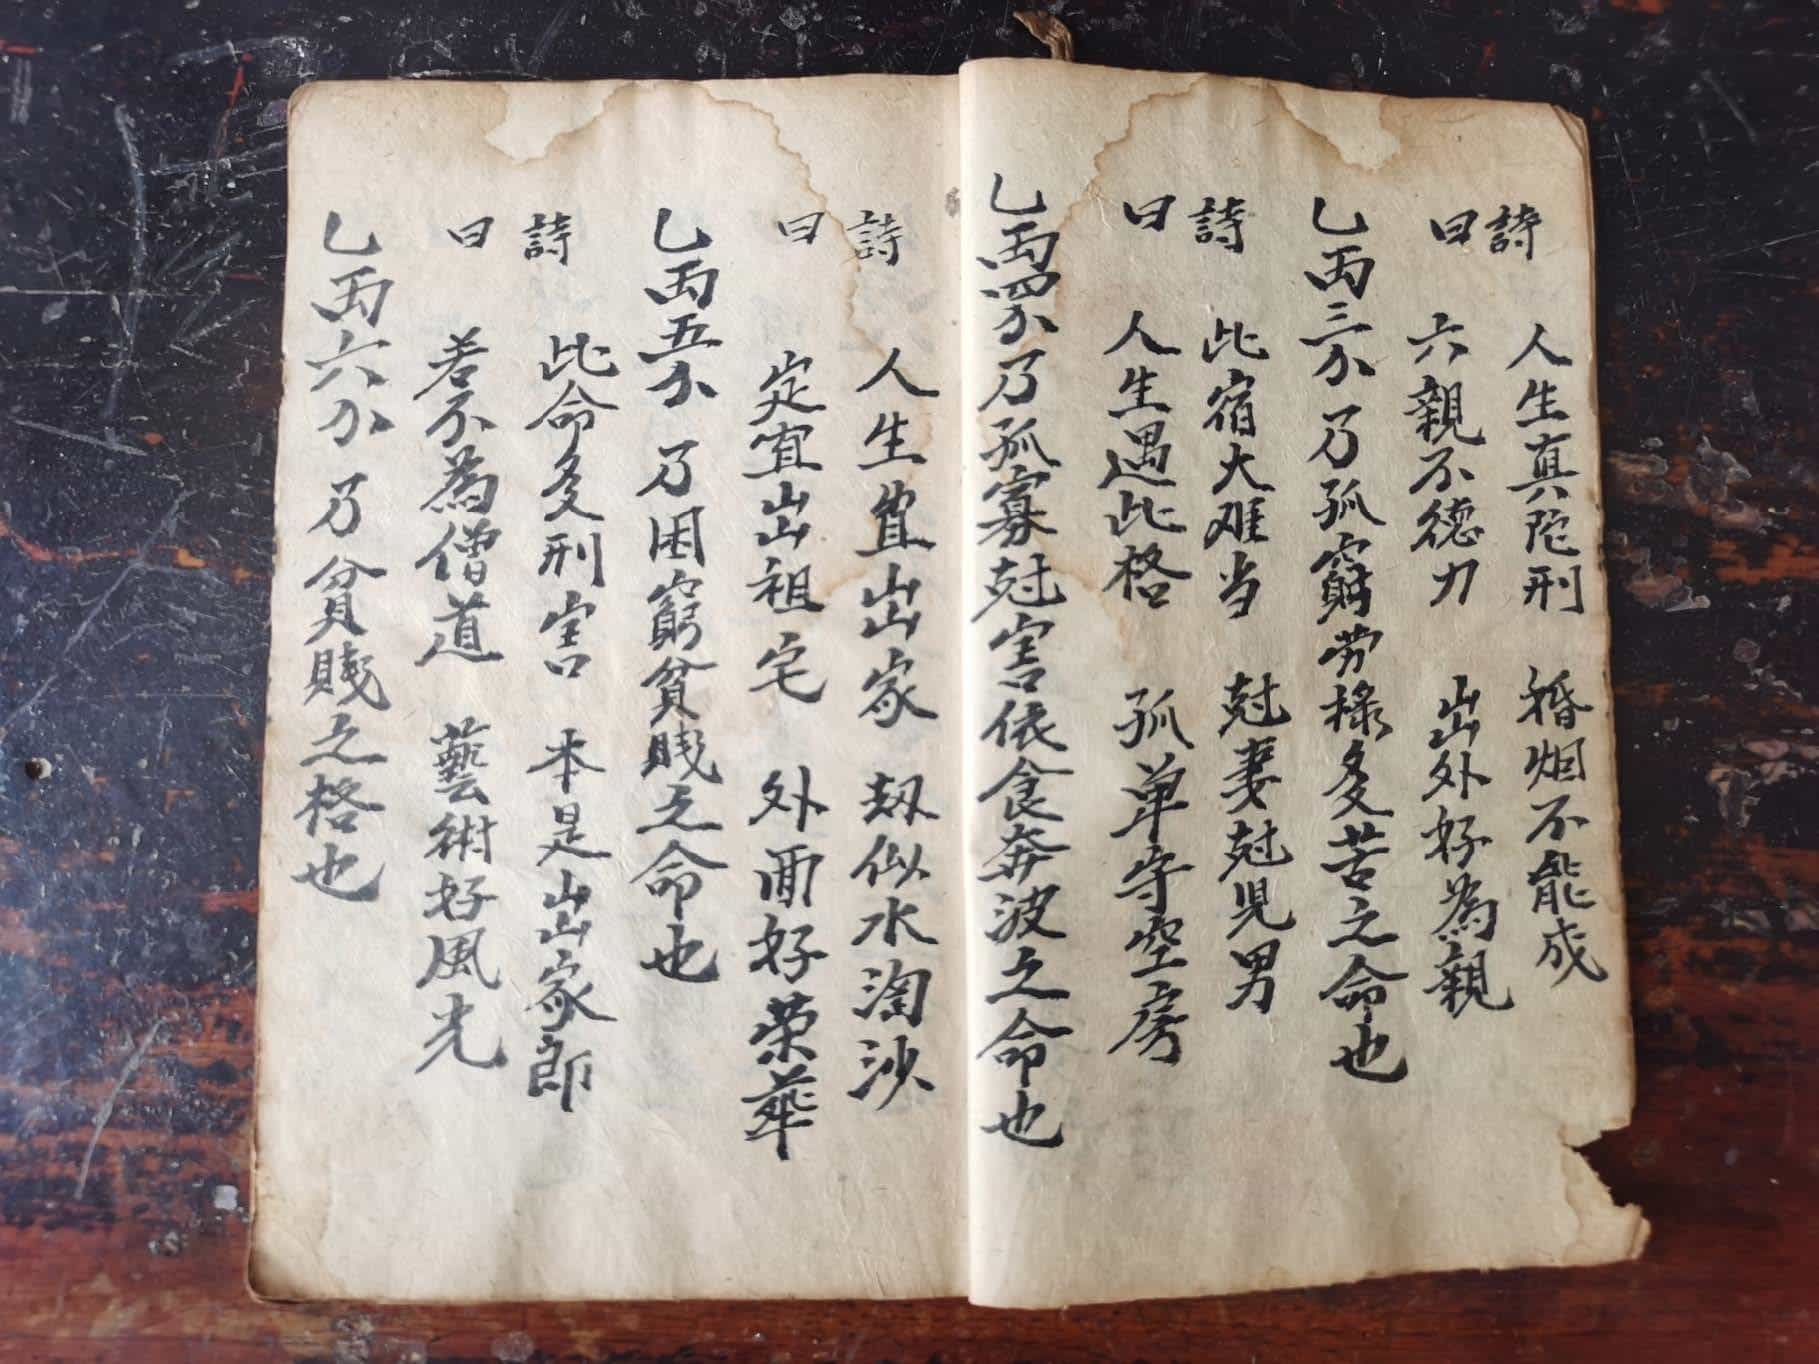 詩曰
人生真陀刑 婚烟不能成
六親不德力 出外好為親
乙丙三分乃孤窮劳碌多苦之命也
詩曰
此宿大难当 尅妻尅児男
人生遇此格 孤单守空房
乙丙四分乃孤寡尅害依食奔波之命也
詩曰
人生宜出家 刼似水淘沙
定宜出祖宅 外面好荣華
乙丙五分乃困窮貧賤之命也
詩曰
此命多刑害 本是出家郎
若不為僧道 藝術好風光
乙丙六分乃貧賤之格也